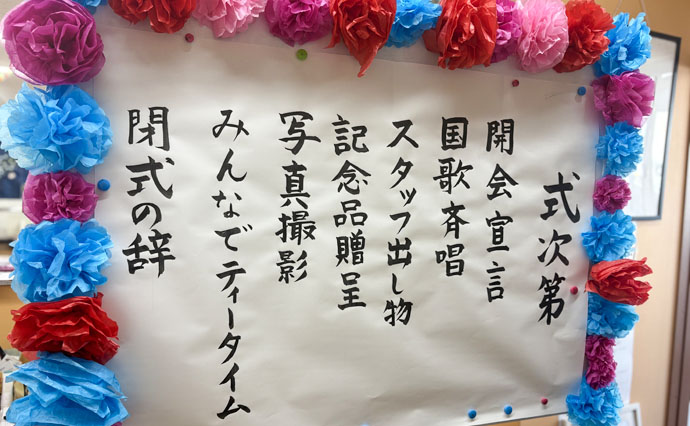 式次第
開会宣言
国歌斉唱
スタッフ出し物
記念品贈呈
写真撮影
みんなでティータイム
閉式の辞